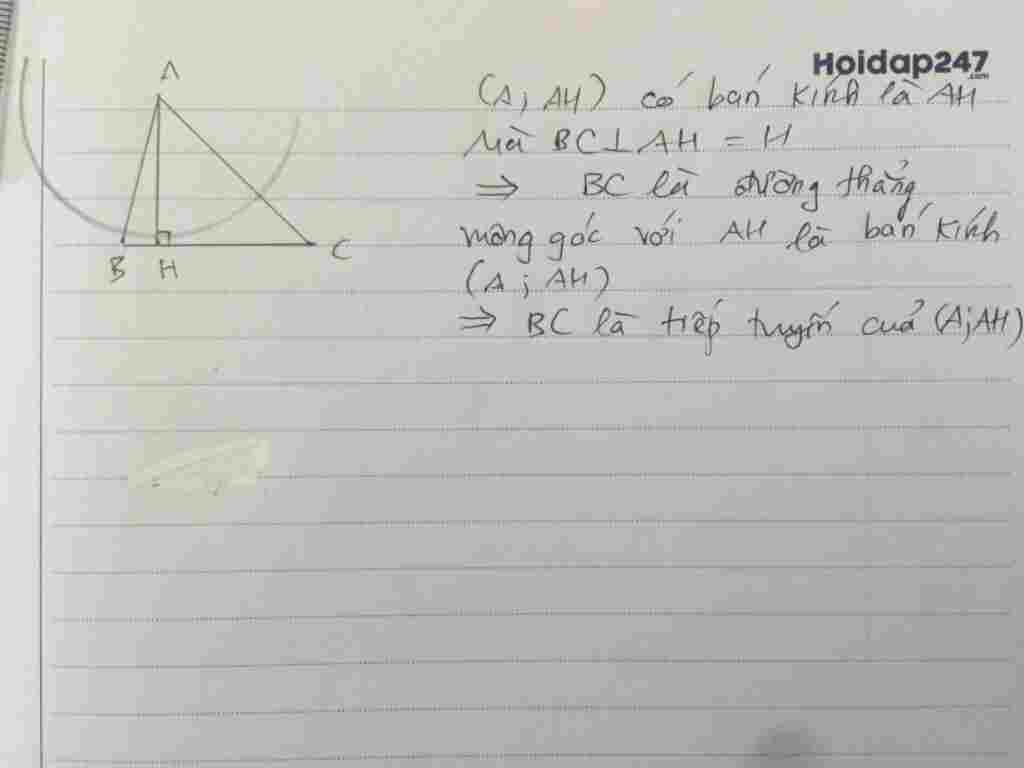 Hoidap247
.com
A
B H C
(A; AH) có bán kính là AH
Mà BC ⊥ AH = H
⇒ BC là đường thẳng
vuông góc với AH là bán kính
(A; AH)
⇒ BC là tiếp tuyến của (A;AH)